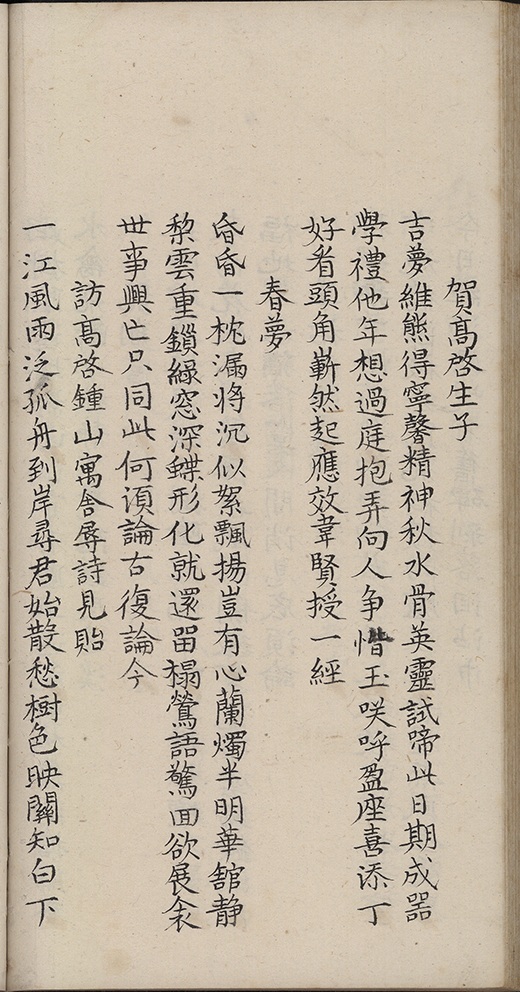 賀高啓生子
吉夢維熊得寧馨精神秋水骨英靈試啼此日期成器
學禮他年想過庭抱弄向人争惜玉咲呼盈座喜添丁
好看頭角嶄然起應效韋賢授一經
春夢
昏昏一枕漏将沉似絮飄揚豈有心蘭燭半明華舘静
梨雲重鎖緑窓深蝶形化就還留榻鶯語驚回欲展衾
世事興亡只同此何須論古復論今
訪高啓鍾山寓舎辱詩見貽
一江風雨泛孤舟到岸尋君始散愁樹色映關知白下